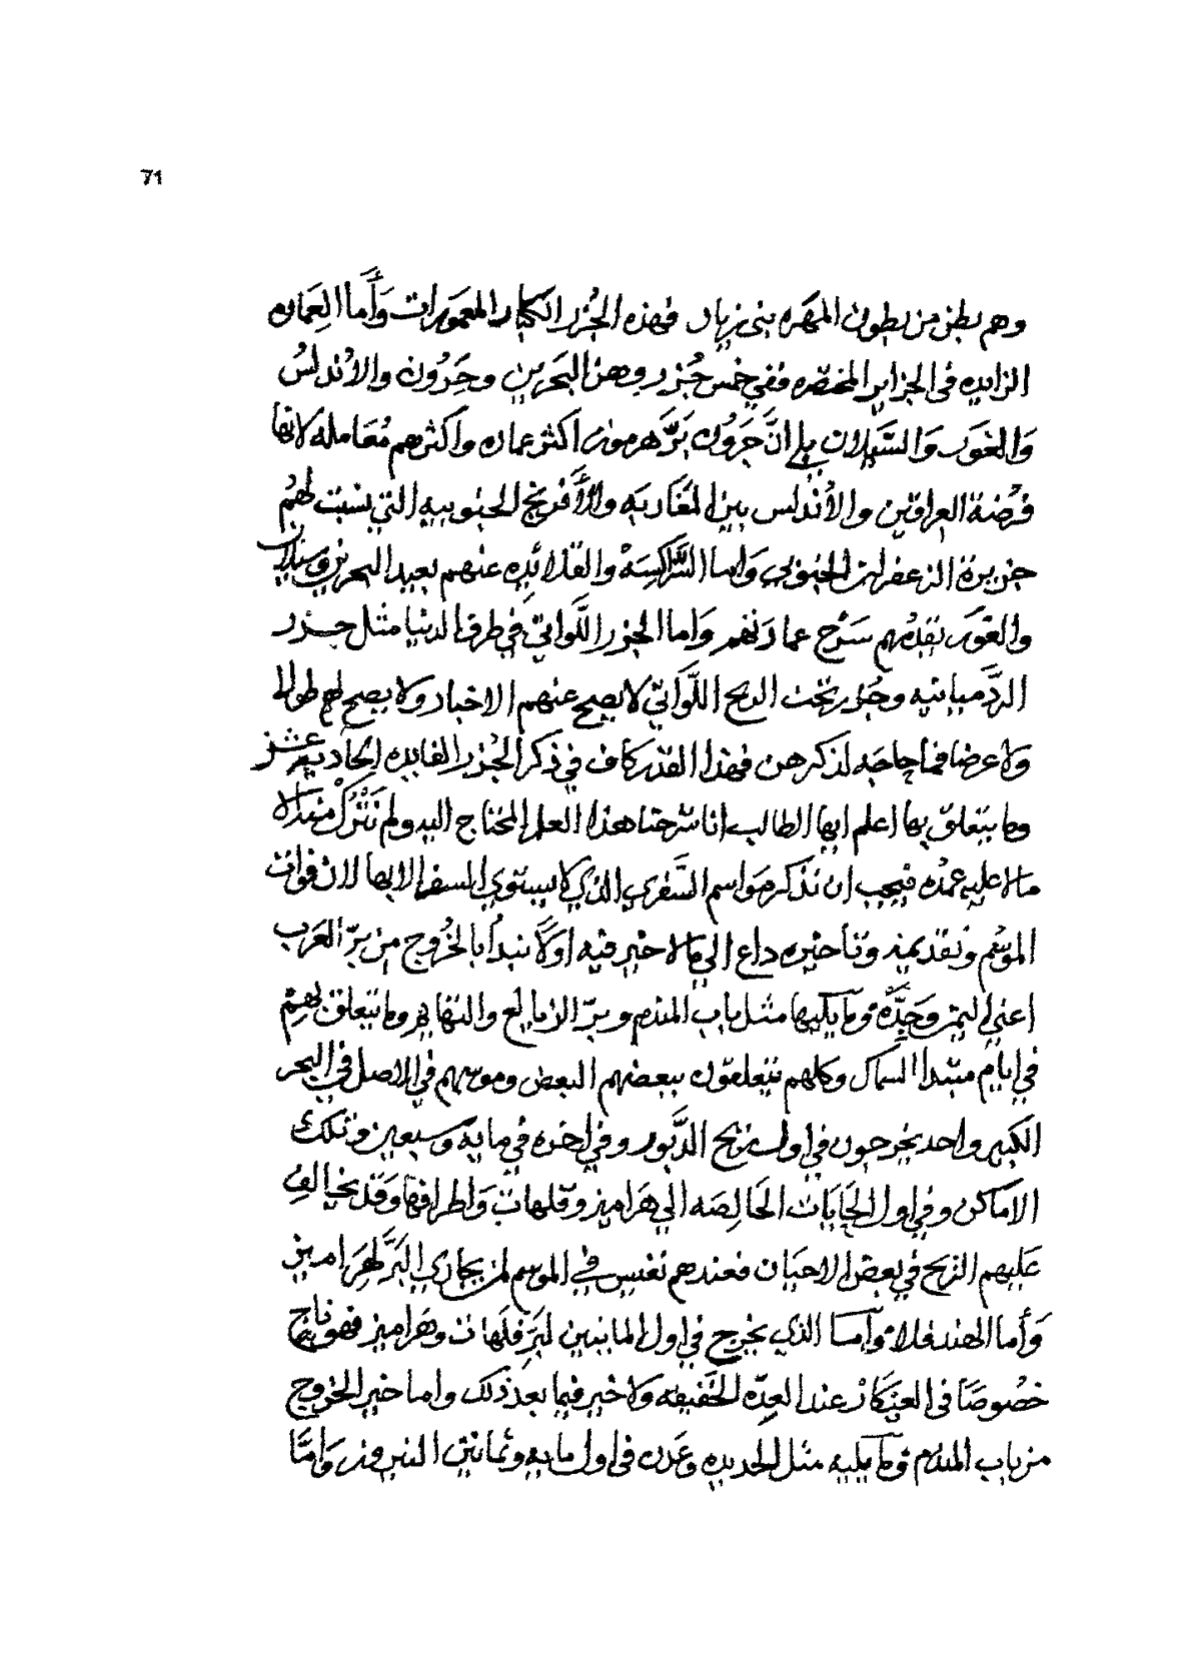 71
وهم بطن من بطون المهره بني زياد فهذه الجزر الكبار المعمورات وأما العماره
الزايده في الجزاير المختصره ففي خمس جزر وهن البحرين وجرون والأندلس
والغور والسيلان بلى ان جرون بر هرموز اكثر عماره واكثرهم معامله لانها
فرضة العراقين والأندلس بين المغاربه والأفرنج الجنوبيه التي نسبت لهم
جزيرة الزعفران الجنوبي واما الشراكسة والقلائده عنهم بعيد البحرين وسيلان
والغور تقدمهم شرح عمارتهم واما الجزر اللواتي في طرف الدنيا مثل جزر
الردميانيه وجزر تحت الريح اللواتي لا يصح عنهم الاخبار ولا يصح لهم طولا
ولا عرضا فما حاجه لذكرهن فهذا القدر كاف في ذكر الجزر الفايده الحاديه عشر
وما يتعلق بها اعلم ايها الطالب انا شرحنا هذا العلم المحتاج اليه ولم نترك منه الا
مالا عليه عمده فيجب ان نذكر مواسم السفر الذي لا يستوي السفر الا بها لان فوات
الموسم وتقديمه وتأخيره داع الى مالا خير فيه اولا نبدأ بالخروج من بر العرب
اعني اليمن وجده وما يليها مثل باب المندم وبر الزيالع والتهايم وما يتعلق بهم
في ايام مبتدا السماك وكلهم يتعلقون ببعضهم البعض وموسهم في الاصل في البحر
الكبير واحد يخرجون في اول ريح الدبور وفي اخره في مايه وسبعين وتلك
الاماكن وفي اول الجايات الخالصه الى هراميز وقلهات واطرافها وقد يخالف
عليهم الريح في بعض الاحيان فعندهم نفيس في الموسم لمن يجاري البر لهراميز
وأما الهند فلا وأما الذي يخرج في اول المايتين لبر قلهات وهراميز فهو ناتخ
خصوصا في العيكار عند العده الخفيفه ولا خير فيما بعد ذلك واما خير الخروج
من باب المندم وما يليه مثل الحديده وعدن في اول مايه وثمانين النيروز واما